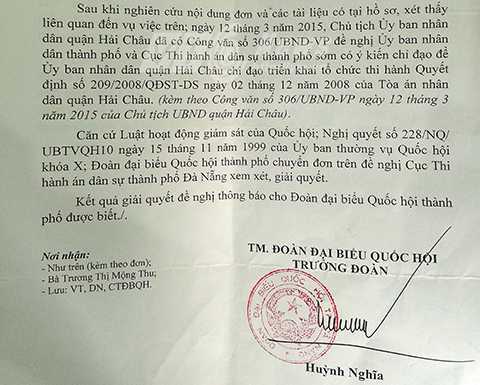 Sau khi nghiên cứu nội dung đơn và các tài liệu có tại hồ sơ, xét thấy
liên quan đến vụ việc trên; ngày 12 tháng 3 năm 2015, Chủ tịch Ủy ban nhân
dân quận Hải Châu đã có Công văn số 306/UBND-VP đề nghị Ủy ban nhân
dân thành phố và Cục Thi hành án dân sự thành phố sớm có ý kiến chỉ đạo để
Ủy ban nhân dân quận Hải Châu chỉ đạo triển khai tổ chức thi hành Quyết
định số 209/2008/QĐST-DS ngày 02 tháng 12 năm 2008 của Tòa án nhân
dân quận Hải Châu. (kèm theo Công văn số 306/UBND-VP ngày 12 tháng 3
năm 2015 của Chủ tịch UBND quận Hải Châu).
Căn cứ Luật hoạt động giám sát của Quốc hội; Nghị quyết số 228/NQ/
UBTVQH10 ngày 15 tháng 11 năm 1999 của Ủy ban thường vụ Quốc hội
khóa X; Đoàn đại biểu Quốc hội thành phố chuyển đơn trên đề nghị Cục Thi
hành án dân sự thành phố Đà Nẵng xem xét, giải quyết.
Kết quả giải quyết đề nghị thông báo cho Đoàn đại biểu Quốc hội thành
phố được biết./.
Nơi nhận:
- Như trên (kèm theo đơn);
- Bà Trương Thị Mộng Thu;
- Lưu: VT, DN, CTĐBQH.
TM. ĐOÀN ĐẠI BIỂU QUỐC HỘI
TRƯỞNG ĐOÀN
Huỳnh Nghĩa